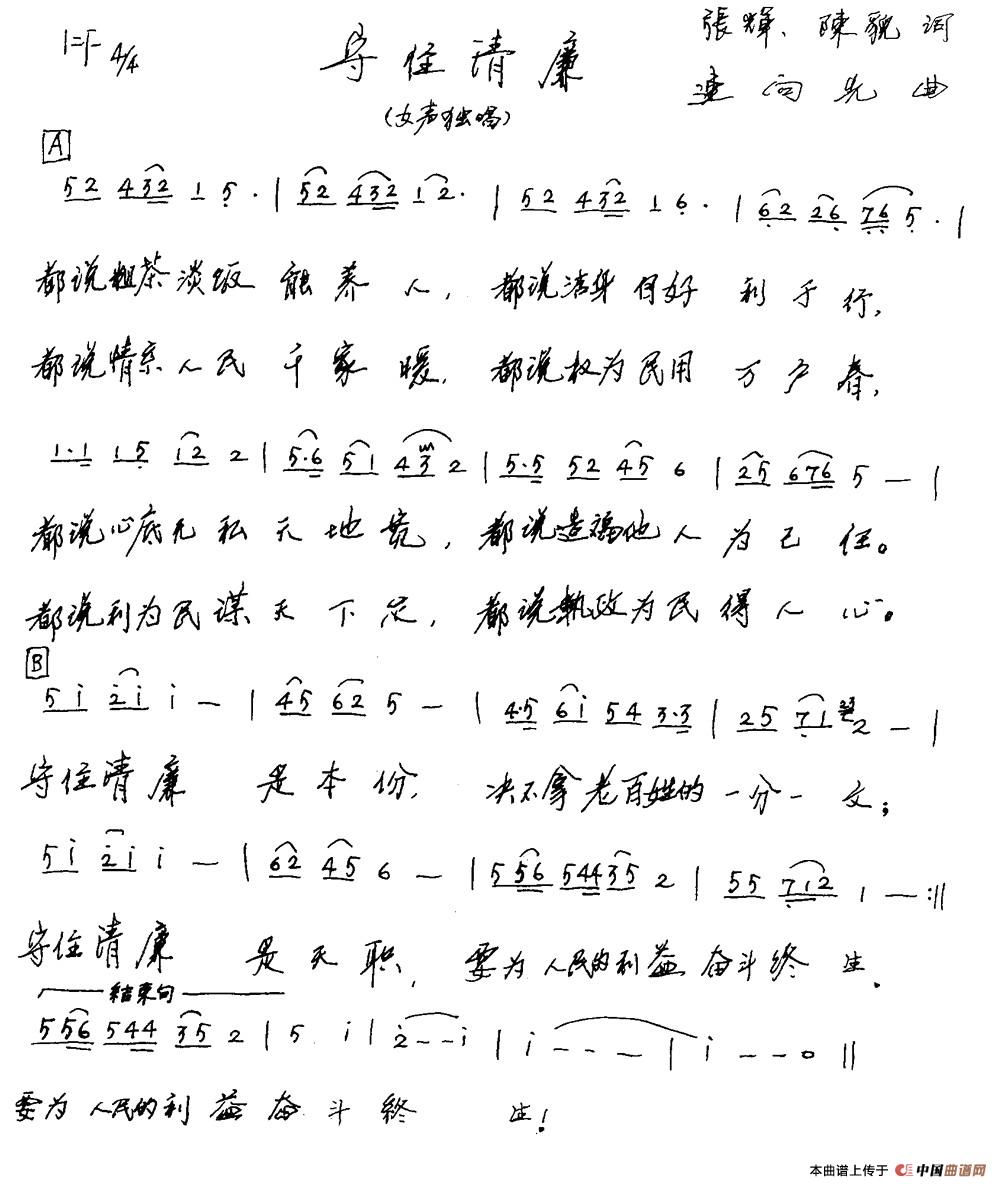 1=F 4/4 守住清廉 張輝、陳貌词
(女声独唱) 連向先曲
A
52 432 1 5. | 52 432 12. | 52 432 1 6. | 62 26 76 5. |
都说粗茶淡饭能养人，都说洁身自好利于行，
都说情系人民千家暖，都说权为民用万户春，
1.1 15 12 2 | 5.6 51 43 2 | 5.5 52 45 6 | 25 676 5 — |
都说心底无私天地宽，都说造福他人为己任。
都说利为民谋天下定，都说執政为民得人心。
B
5i i̇i i — | 45 62 5 — | 4.5 6i 54 3.3 | 25 71 2 — |
守住清廉是本份，决不拿老百姓的一分一文；
5i 2i i — | 62 45 6 — | 556 544 35 2 | 55 712 1 — :||
守住清廉是天职，要为人民的利益奋斗终生.
结束句
556 544 35 2 | 5 . i | 2 - - i | i - - — | i - - 0 ||
要为人民的利益奋斗終生！
本曲谱上传于 中国曲谱网